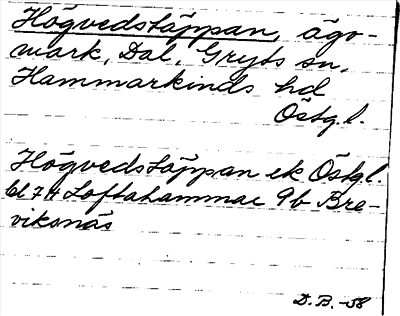 Högvedstäppan, ägo-
mark, Dal, Gryts sn,
Hammarkinds hd
Östg.l.
Högvedstäppan ek Östgl.
bl 74 Loftahammar 9b Bre-
viksnäs
D.B. -58